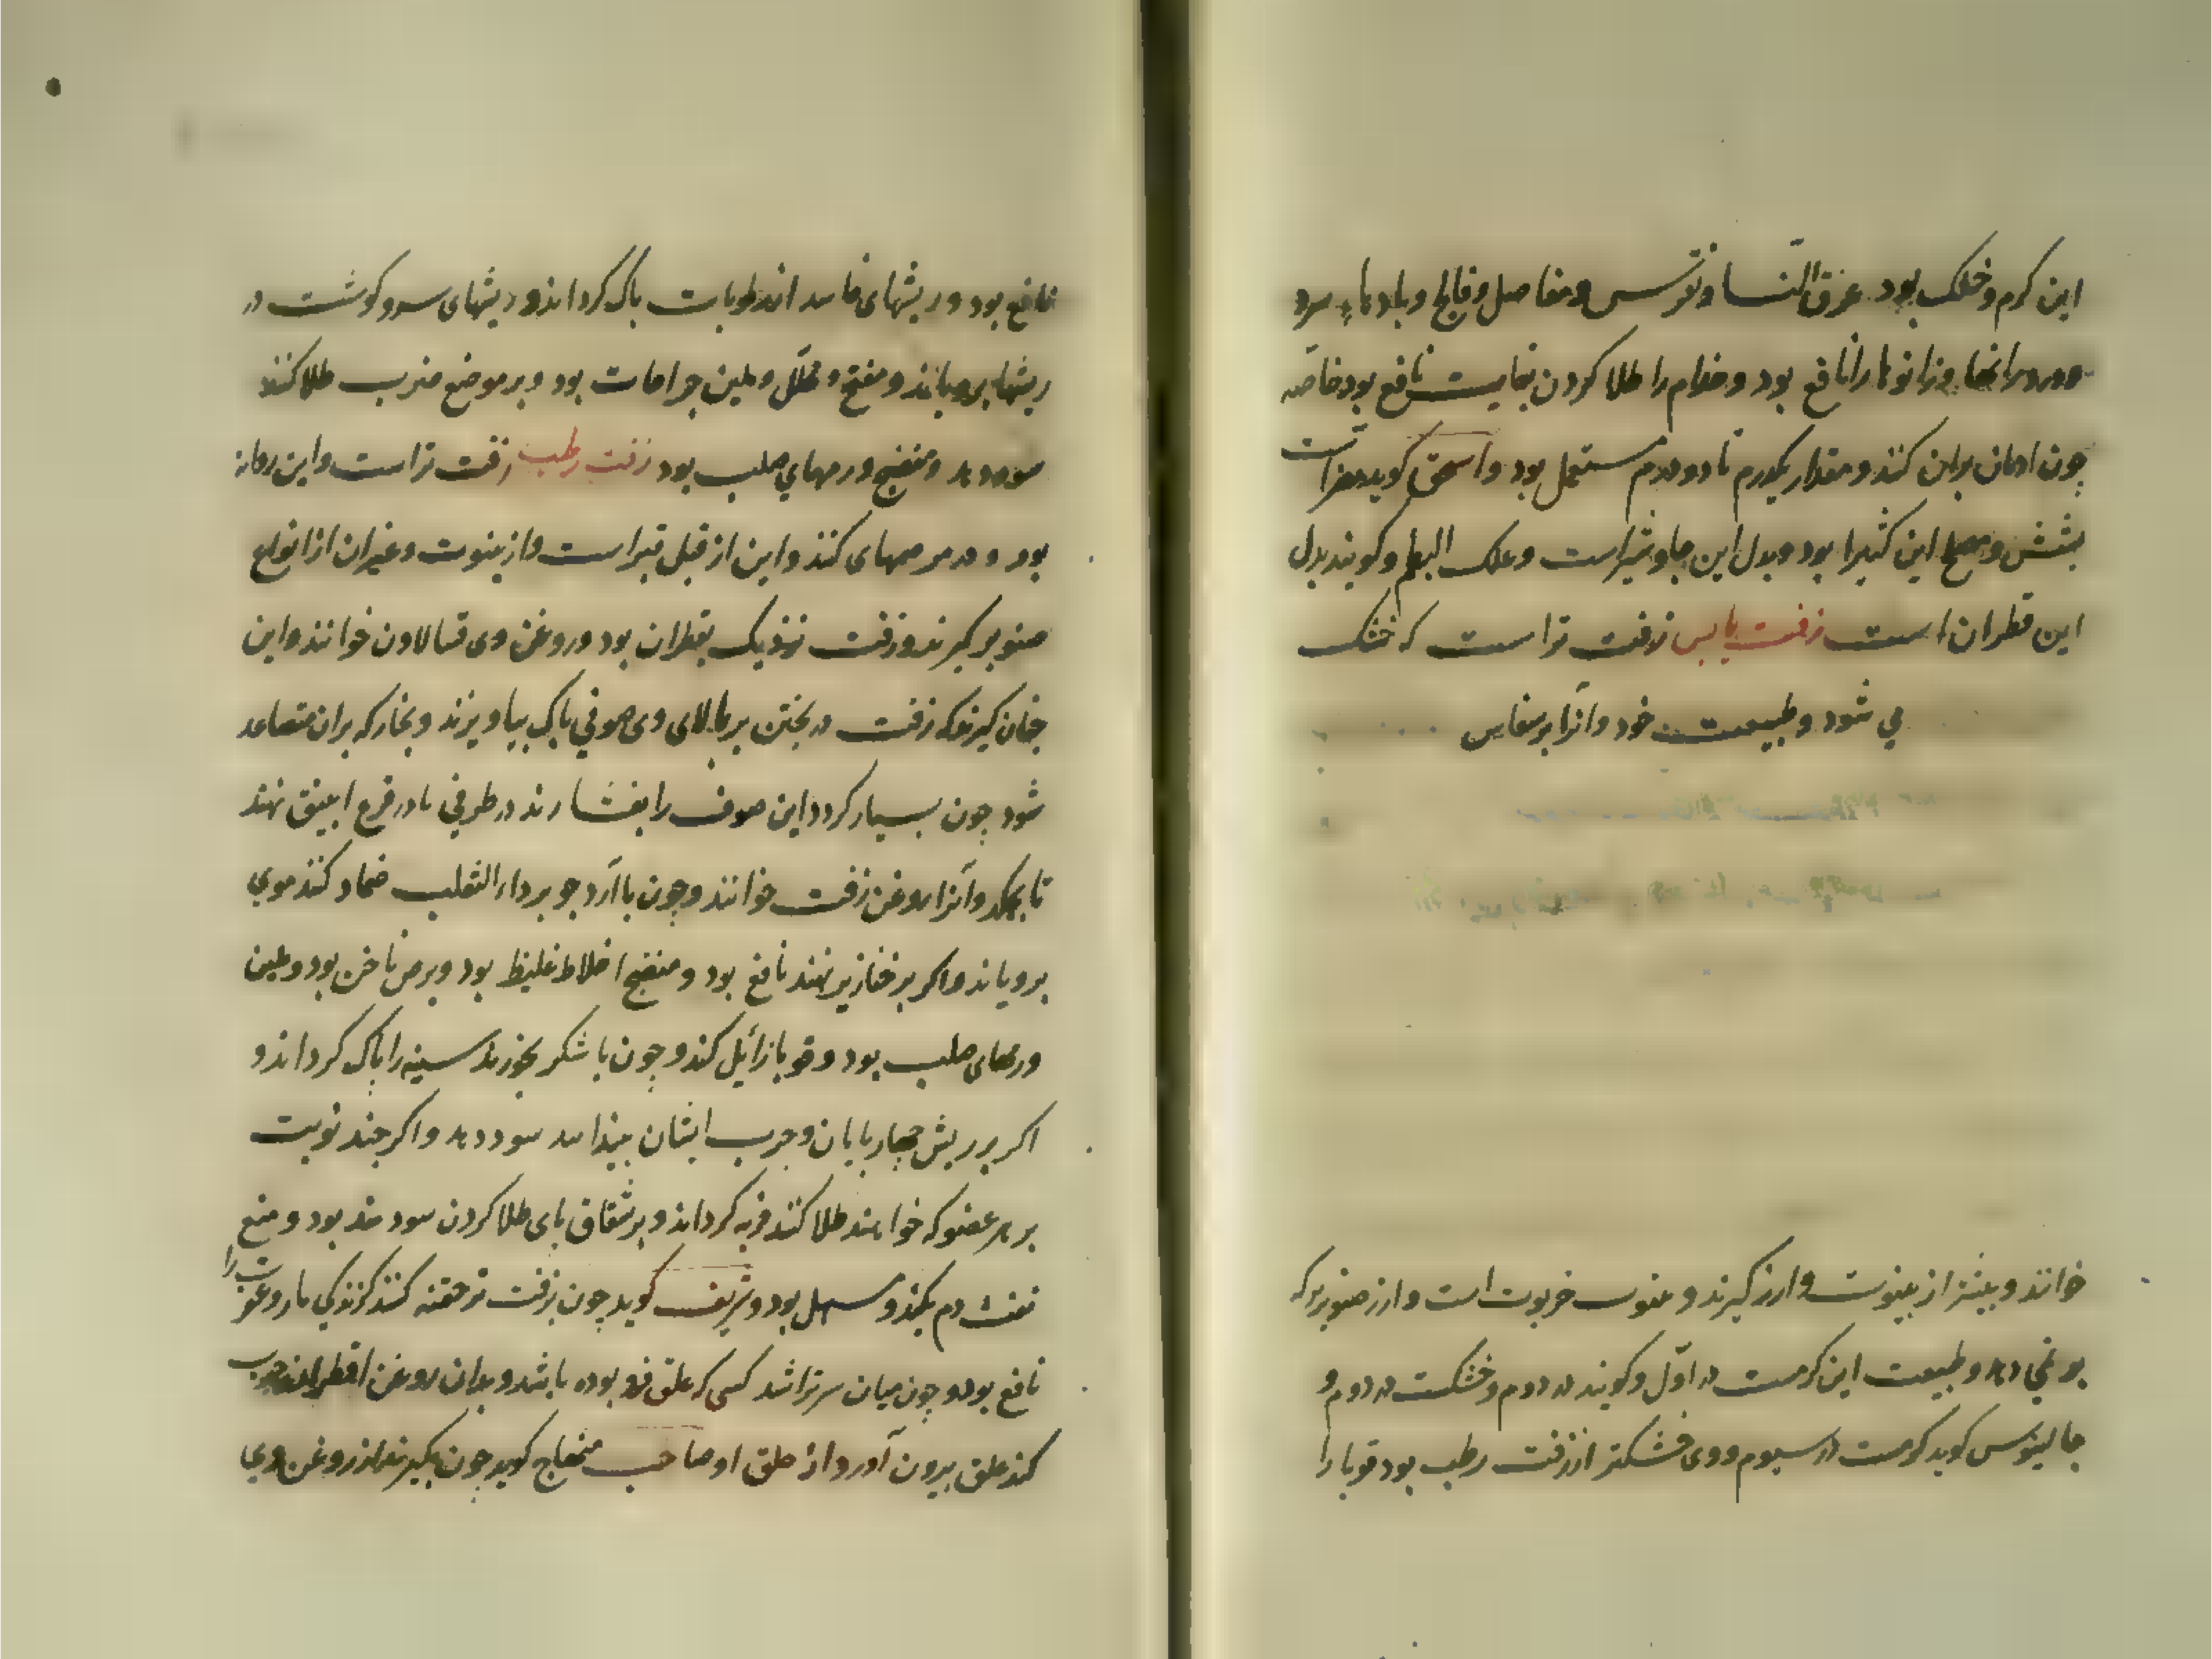 این کرم و خشک بود عرق النسا و نقرس و مفاصل و فالج و بادهاء سرد
و درد رانها و زانوها را نافع بود و جذام را طلا کردن بغایت نافع بود خاصه
چون ادمان بران کنند و مقدار یکدرم تا دو درم مستعمل بود و اسحق کوید مضر است
بشش و مصلح این کثیرا بود و بدل این جاوشیر است و علک البطم و کویند بدل
این قطران است زفت یابس زفت تر است که خشک
می شود و طبیعت خود و آنرا برسفایس
خوانند و بیشتر از بینوت و ارز کیرند و بینوت خربوت است و ارز صنوبر که
بر نمی دهد و طبیعت این کرمست در اول و کویند در دوم و خشکست در دوم و
جالینوس کوید کرمست در سیوم و وی خشکتر از زفت رطب بود قوبا را
نافع بود و ریشهای فاسد از رطوبات پاک کرداند و ریشهای سر و کوشت در
ریشها برویاند و مفتح و محلل و ملین جراحات بود و بر موضع ضرب طلا کنند
سود دهد و منضج ورمهای صلب بود زفت رطب زفت تر است و این روان
بود و در مرهمهای کنند و این از قبل قیر است و از بینوت و غیر ان از انواع
صنوبر کیرند و زفت نزدیک بقطران بود و روغن وی قسالاون خوانند و این
چنان کیرند که زفت در پختن بر بالای وی صوفی پاک بیاویزند و بخار که بران متصاعد
شود چون بسیار کردد این صوف را بفشارند در ظرفی یا در قرع انبیق نهند
تا بچکد و آنرا روغن زفت خوانند و چون با آرد جو بر داء الثعلب ضماد کنند موی
برویاند و اکر بر خنازیر نهند نافع بود و منضج اخلاط غلیظ بود و برص ناخن بود و ملین
ورمهای صلب بود و قوبا زائل کند و چون با شکر بخورند سینه را پاک کرداند و
اکر بر ریش چهارپایان و جرب ایشان بیندایند سود دهد و اکر چند نوبت
بر هر عضو که خواهند طلا کنند فربه کرداند و بر شقاق پای طلا کردن سودمند بود و منع
نفث دم بکند و مسهل بود و شریف کوید چون زفت تر حقنه کنند کزندکی مار و عقرب را
نافع بود و چون میان سر تراشد کسی که علق فرو بوده باشد و بدان روغن چرب
کند علق بیرون آورد از حلق او صاحب منهاج کوید چون بکیرند از روغن وی